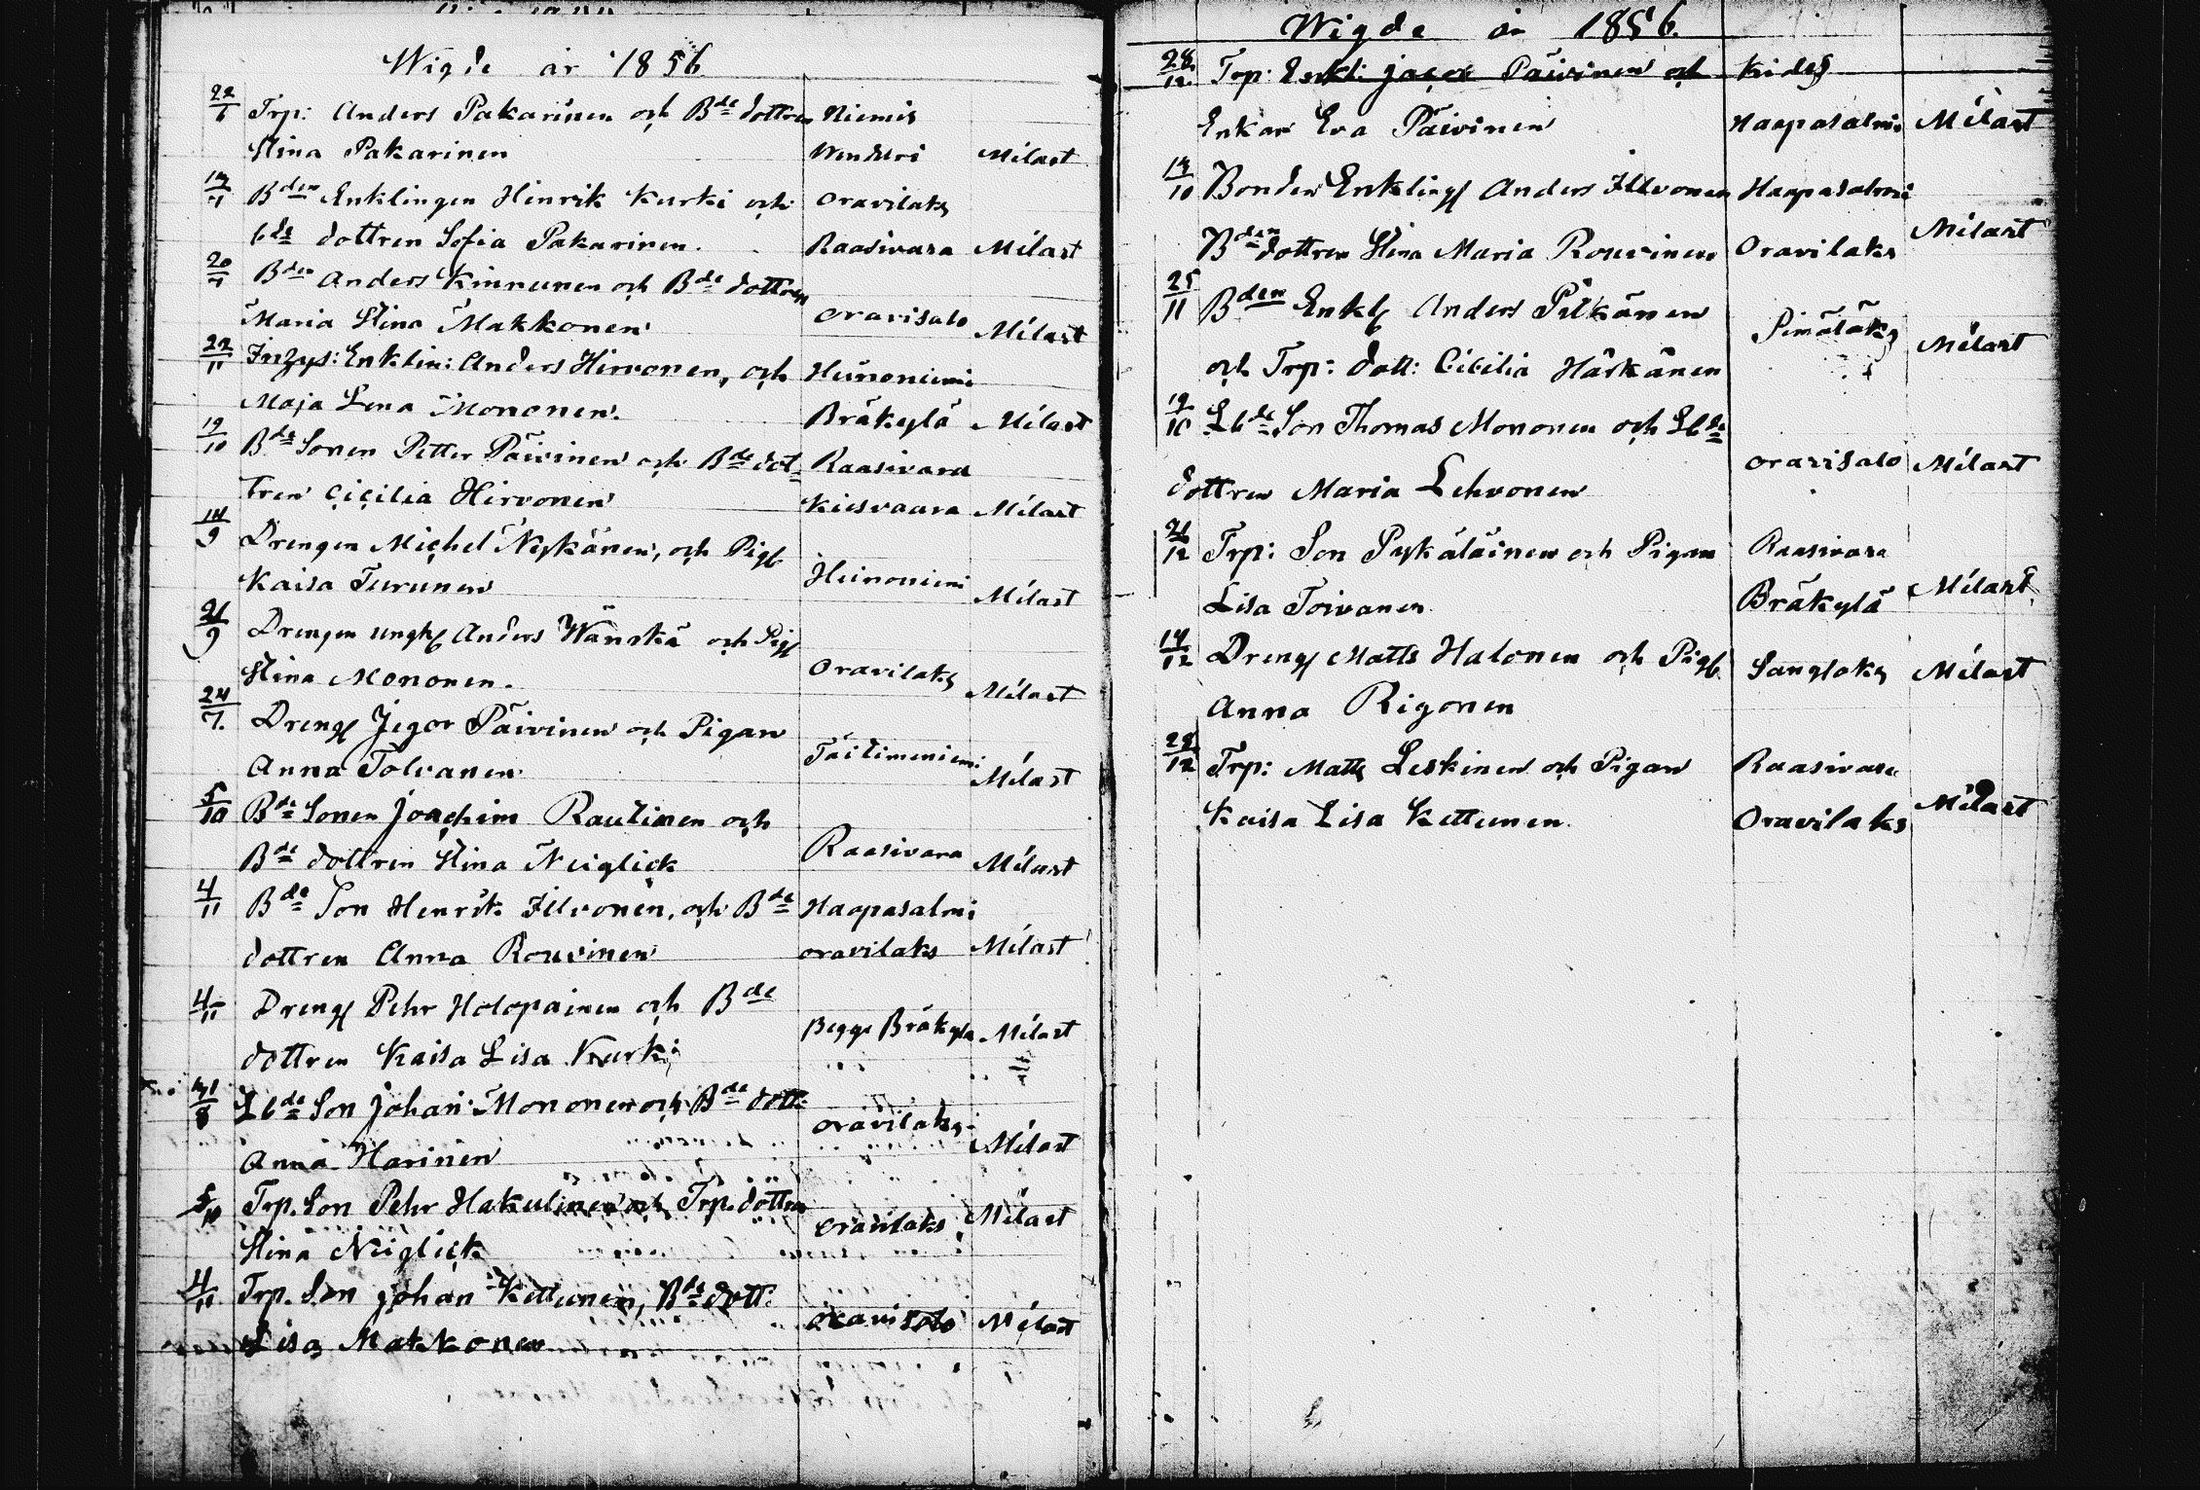 Wigde år 1856
22/6 Trp: Anders Pakarinen och Bde dottren Niemis
Stina Pakarinen Wenduri Mélart
Bden Enklingen Hinrik Kurki och Oravilaks
bde dottren Sofia Pakarinen. Raasivara Mélart
Bden Anders Kinnunen och Bde dottren
Maria Stina Makkonen Oravisalo Mélart
22/11 Anders Hirvonen, och Heinoniemi
Maja Lena Mononen. Bräkylä Mélart
19/10 Bde Sonen Petter Päivinen och Bde dot- Raasivara
tren Cicilia Hirvonen Kiesvaara Mélart
14/9 Drengen Michel Nykänen, och Pig
Kaisa Turunen Heinoniemi Mélart
21/9 Drengen ungk Anders Wänskä och Pig
Stina Mononen. Oravilaks Mélart
24/7. Dreng Jegor Päivinen och Pigan
Anna Tolvanen Täitimeniemi Mélart
5/10 Bde Sonen Joachim Rautinen och
Bde dottren Stina Neiglick Raasivara Mélart
4/11 Bde Son Henrik Illvonen, och Bde Haapasalmi
dottren Anna Rouvinen oravilaks Mélart
4/11 Dreng Pehr Holopainen och Bde
dottren Kaisa Lisa Kurki Begge Bräkylä Mélart
Lbde Son Johan Mononen och Bde dott:
Anna Harinen oravilaks Mélart
5/10 Trp. Son Pehr Hakulinen och Trp. dottren
Stina Neiglick oravilaks Mélart
4/11 Trp. Son Johan Kettunen, Bde dott:
Lisa Makkonen oravisalo Mélart
Wigde år 1856.
28/12 Trp: Enkl: Jacob Päivinen och Kides
Enkan Eva Päivinen Haapasalmi Mélart
Bonden Enkling Anders Illvonen Haapasalmi
Bden dottren Stina Maria Rouvinen Oravilaks Mélart
25/11 Bden Enkl Anders Pitkänen
och Trp: dott: Cicilia Härkänen Pimäläks Mélart
19/10 Lbde Son Thomas Mononen och Lbde
dottren Maria Lehvonen oravisalo Mélart
Trp: Son Pykäläinen och Pigan Raasivara
Lisa Toivanen Bräkylä Mélart
14/12 Dreng Matts Halonen och Pig Sanglaks Mélart
Anna Rigonen
28/12 Trp: Matts Leskinen och Pigan Raasivara
Kaisa Lisa Kettunen Oravilaks Mélart